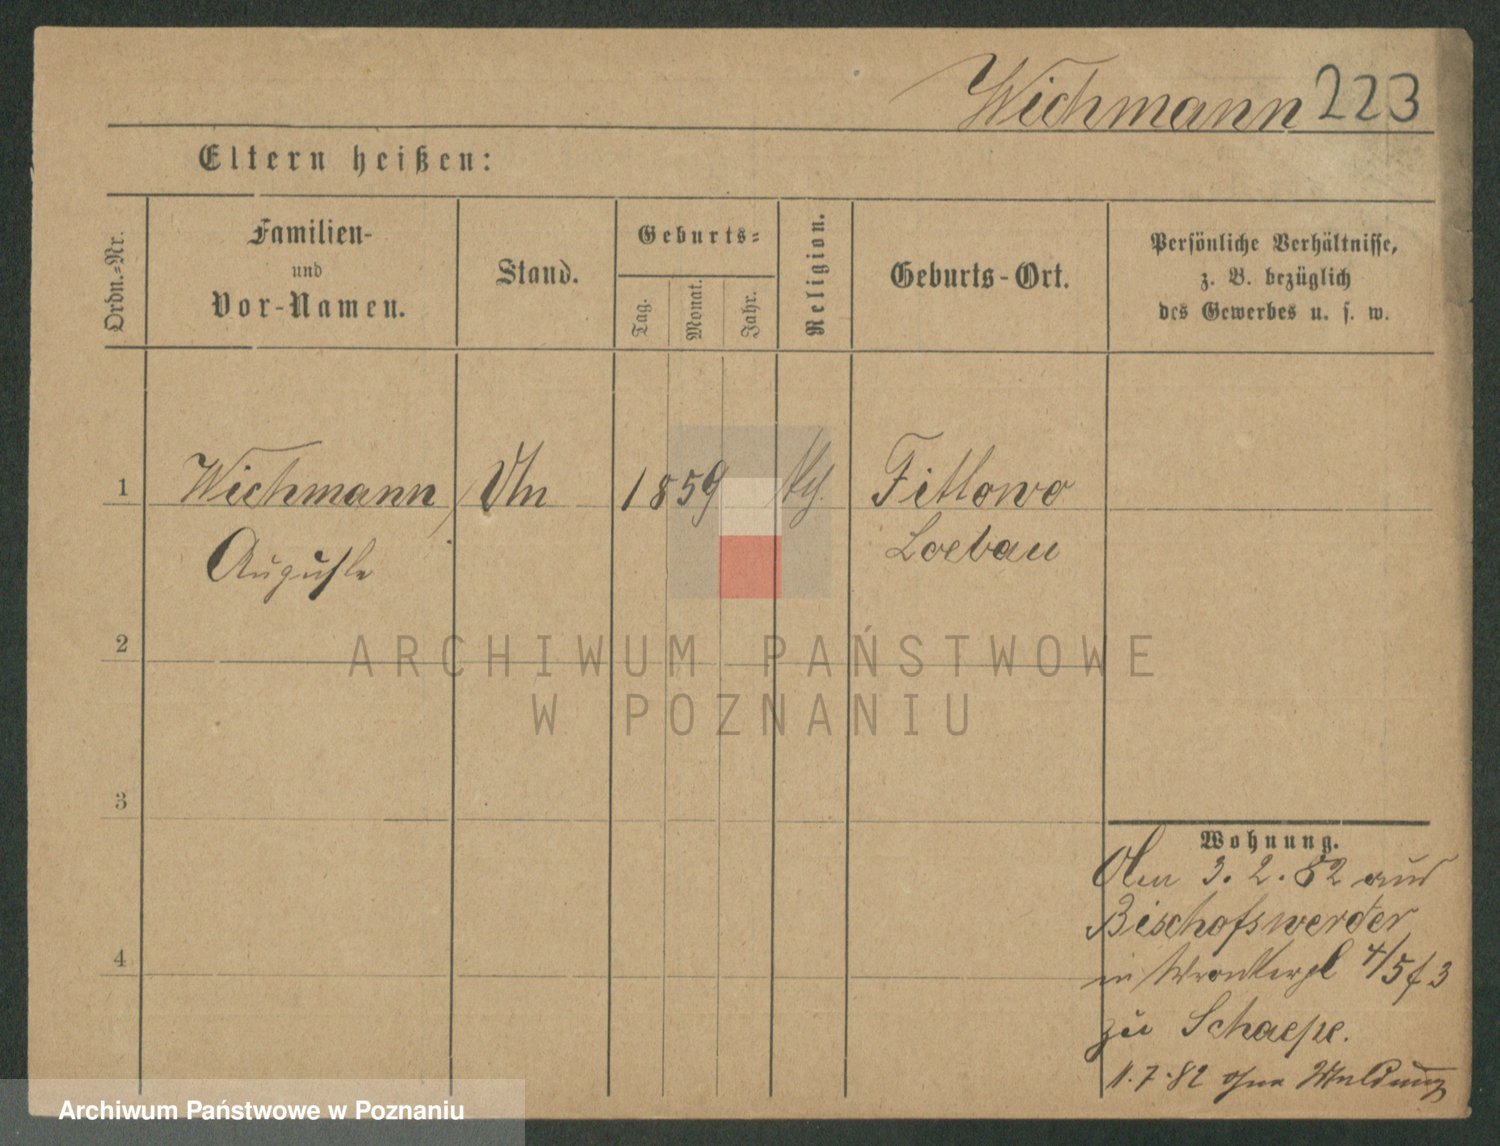 Wichmann 223
Eltern heißen:
Ordn.-Nr.
Familien-
und
Vor-Namen.
Stand.
Geburts-
Tag.
Monat.
Jahr.
Religion.
Geburts-Ort.
Persönliche Verhältnisse,
z. B. bezüglich
des Gewerbes u. s. w.
1 Wichmann 1859 Fitlowo
Auguste Loebau
2
ARCHIWUM PAŃSTWOWE
W POZNANIU
3
Wohnung.
3. 2. 82 aus
Bischofswerder
in 4/5 f 3
4
zu Schaepe.
11. 7. 82 ohne Meldung
Archiwum Państwowe w Poznaniu